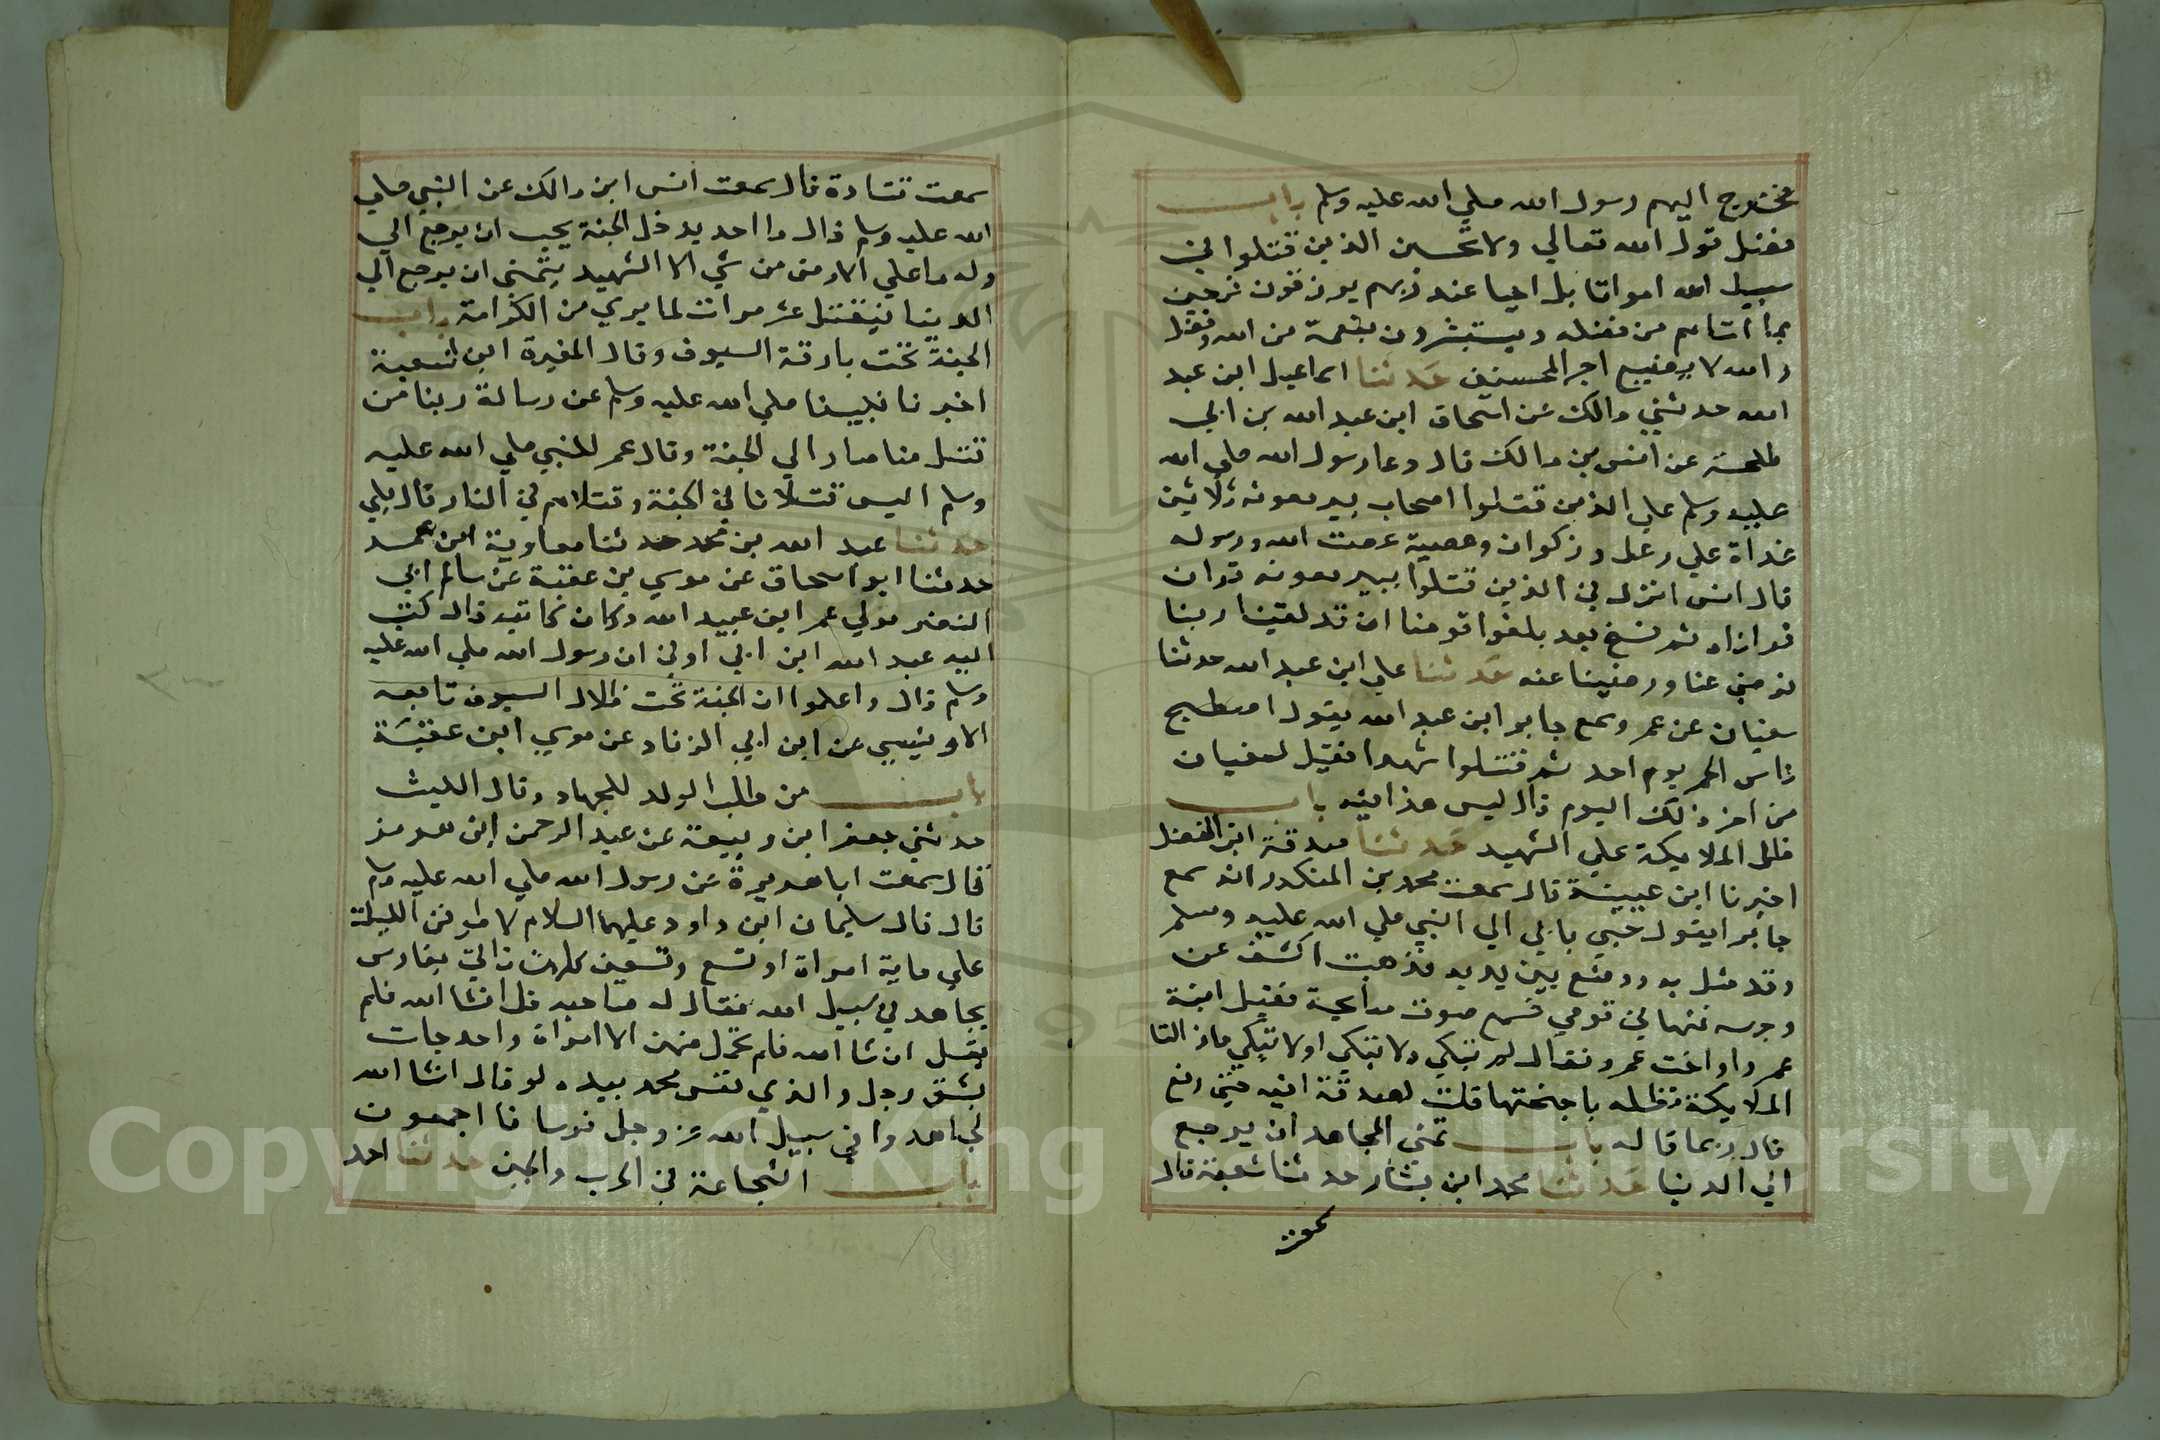 فخرج اليهم رسول الله صلي الله عليه وسلم باب
فضل قول الله تعالي ولا تحسبن الذين قتلوا في
سبيل الله امواتا بل احيا عند ربهم يرزقون فرحين
بما اتاهم من فضله ويستبشرون بنعمة من الله وفضل
والله لا يضيع اجر المحسنين حدثنا اسماعيل ابن عبد
الله حدثني مالك عن اسحاق ابن عبد الله بن ابي
طلحة عن انس بن مالك قال دعا رسول الله صلي الله
عليه وسلم علي الذين قتلوا اصحاب بير معونه ثلاثين
غداة علي رعل وذكوان وعصية عصت الله ورسوله
قال انس انزل في الذين قتلوا ببير معونه قران
قراناه ثم نسخ بعد بلغوا قومنا ان قد لقينا ربنا
فرضي عنا ورضينا عنه حدثنا علي ابن عبد الله حدثنا
سفيان عن عمر وسمع جابر ابن عبد الله يقول اصطبح
ناس الخمر يوم احد ثم قتلوا شهدا فقيل لسفيان
من اخر ذلك اليوم قال ليس هذا فيه باب
ظل الملايكة علي الشهيد حدثنا صدقة ابن الفضل
اخبرنا ابن عيينة قال سمعت محمد بن المنكدر انه سمع
جابرا يقول جيي بابي الي النبي صلي الله عليه وسلم
وقد مثل به ووضع بين يديه فذهبت اكشف عن
وجهه فنهاني قومي فسمع صوت صايحة فقيل ابنة
عمرو او اخت عمرو فقال لم تبكي ولا تبكي او لا تبكي ما زالت
الملايكة تظله باجنحتها قلت لصدقة افيه حتي رفع
قال ربما قاله باب تمني المجاهد ان يرجع
الي الدنيا حدثنا محمد ابن بشار حدثنا شعبة قال
سمعت
سمعت قتادة قال سمعت انس ابن مالك عن النبي صلي
الله عليه وسلم قال ما احد يدخل الجنة يحب ان يرجع الي
وله ما علي الارض من شي الا الشهيد يتمني ان يرجع الي
الدنيا فيقتل عشر مرات لما يري من الكرامة باب
الجنة تحت بارقة السيوف وقال المغيرة ابن شعبة
اخبرنا نبيينا صلي الله عليه وسلم عن رسالة ربنا من
قتل منا صار الي الجنة وقال عمر للنبي صلي الله عليه
وسلم اليس قتلانا في الجنة وقتلاهم في النار قال بلي
حدثنا عبد الله بن محمد حدثنا معاوية ابن عمر
حدثنا ابو اسحاق عن موسي بن عقبة عن سالم ابي
النضر مولي عمر ابن عبيد الله وكان كاتبه قال كتب
اليه عبد الله ابن ابي اوفي ان رسول الله صلي الله عليه
وسلم قال واعلموا ان الجنة تحت ظلال السيوف تابعه
الاويسي عن ابن ابي الزناد عن موسي ابن عقبة
باب من طلب الولد للجهاد وقال الليث
حدثني جعفر ابن ربيعة عن عبد الرحمن ابن هرمز
قال سمعت ابا هريرة عن رسول الله صلي الله عليه وسلم
قال قال سليمان ابن داود عليهما السلام لاطوفن الليلة
علي ماية امراة او تسع وتسعين كلهن تاتي بفارس
يجاهد في سبيل الله فقال له صاحبه قل انشا الله فلم
يقل ان شا الله فلم تحمل منهن الا امراة واحد جات
بشق رجل والذي نفس محمد بيده لو قال انشا الله
لجاهدوا في سبيل الله عز وجل فرسانا اجمعون
باب الشجاعة في الحرب والجبن حدثنا احمد
Copyright © King Saud University